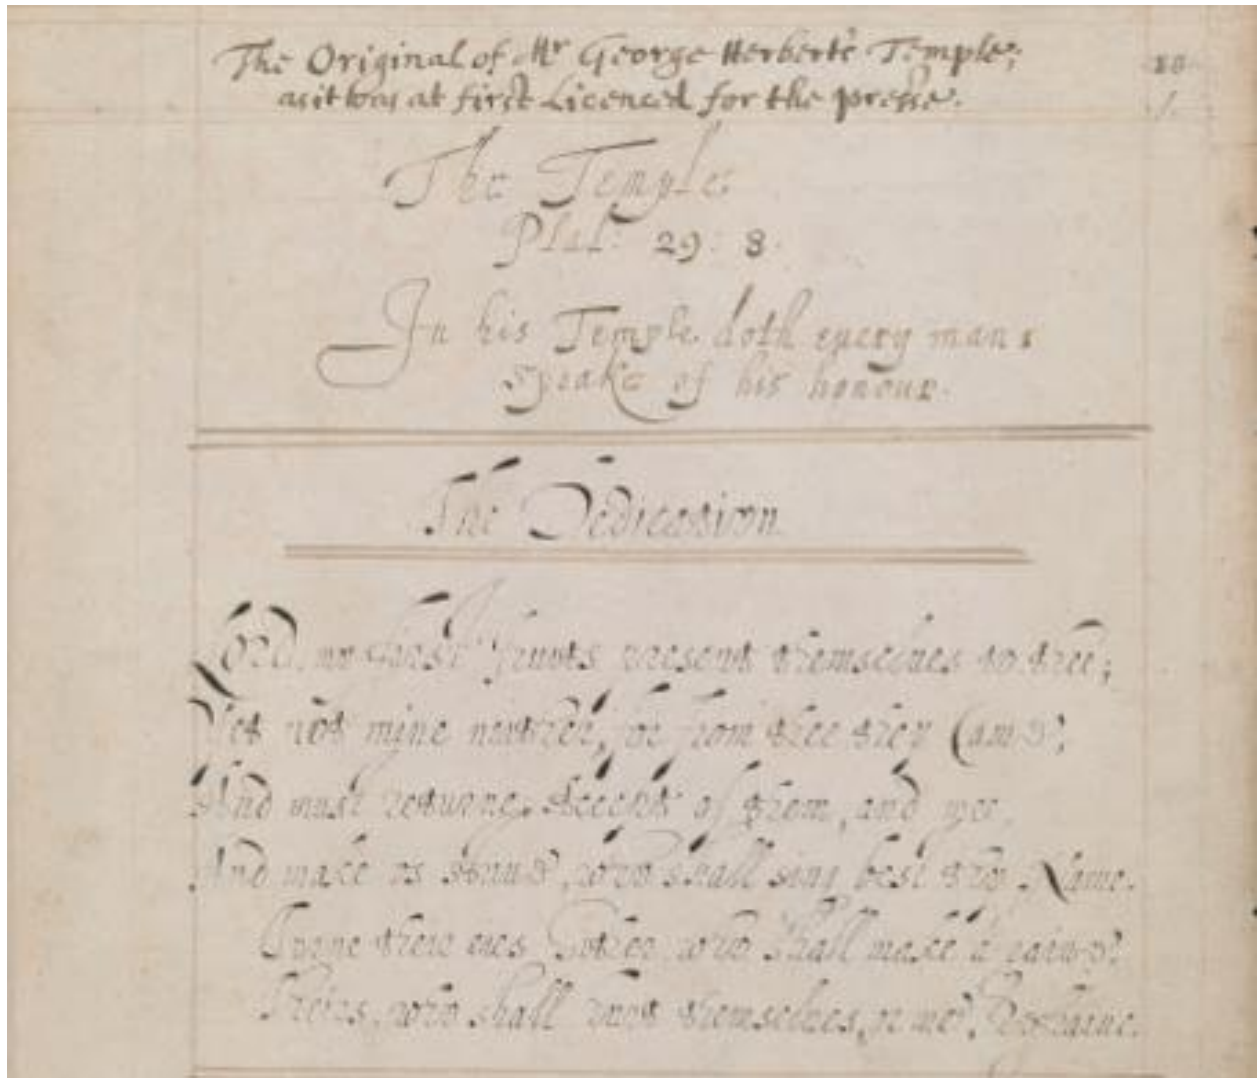 The Original of Mr George Herbert's Temple;
as it was at first Licenced for the presse.
The Temple.
Psal: 29: 8.
In his Temple doth every man
speake of his honour.
The Dedication
Lord, my first fruits present themselves to thee;
Yet not mine neither, for from thee they came,
And must returne. Accept of them, and mee,
And make us strive, who shall sing best thy Name.
Turne their eies hither, who shall make a gaine.
Theirs, who shall hurt themselves, or me, refraine.